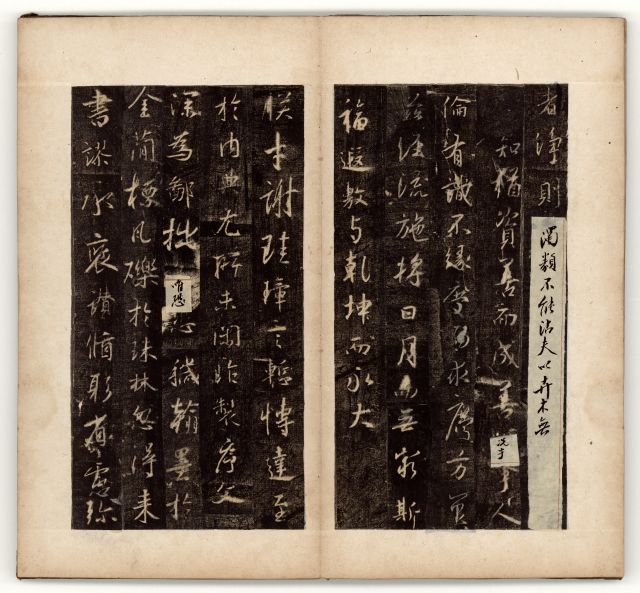 者淨則濁類不能沾夫以卉木無
知猶資善而成善況乎人
倫有識不緣慶而求慶方冀
茲經流施將日月而无窮斯
福遐敷与乾坤而永大
朕才謝珪璋言慚博達至
於內典尤所未閑昨製序文
深為鄙拙唯恐穢翰墨於
金簡標瓦礫於珠林忽得来
書謬承褒讚循躬省慮弥